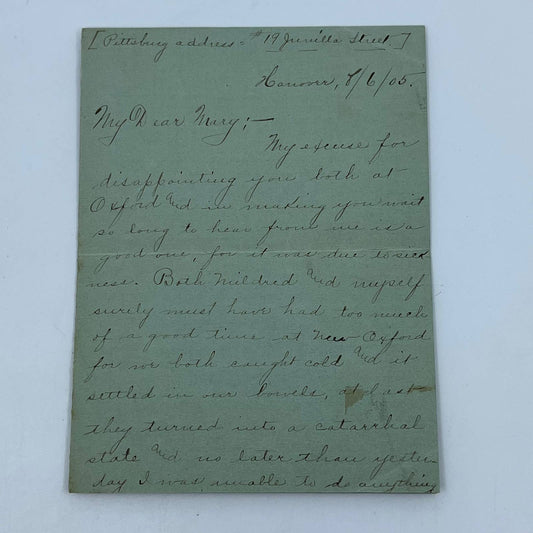 [Pittsburg address = #19 Junilla Street.]
Hanover, 8/6/05.
My Dear Mary;—
My excuse for
disappointing you both at
Oxford and in making you wait
so long to hear from me is a
good one, for it was due to sick
ness. Both Mildred and myself
surely must have had too much
of a good time at New Oxford
for we both caught cold and it
settled in our bowels, at last
they turned into a catarrhal
state and no later than yester-
day I was unable to do anything